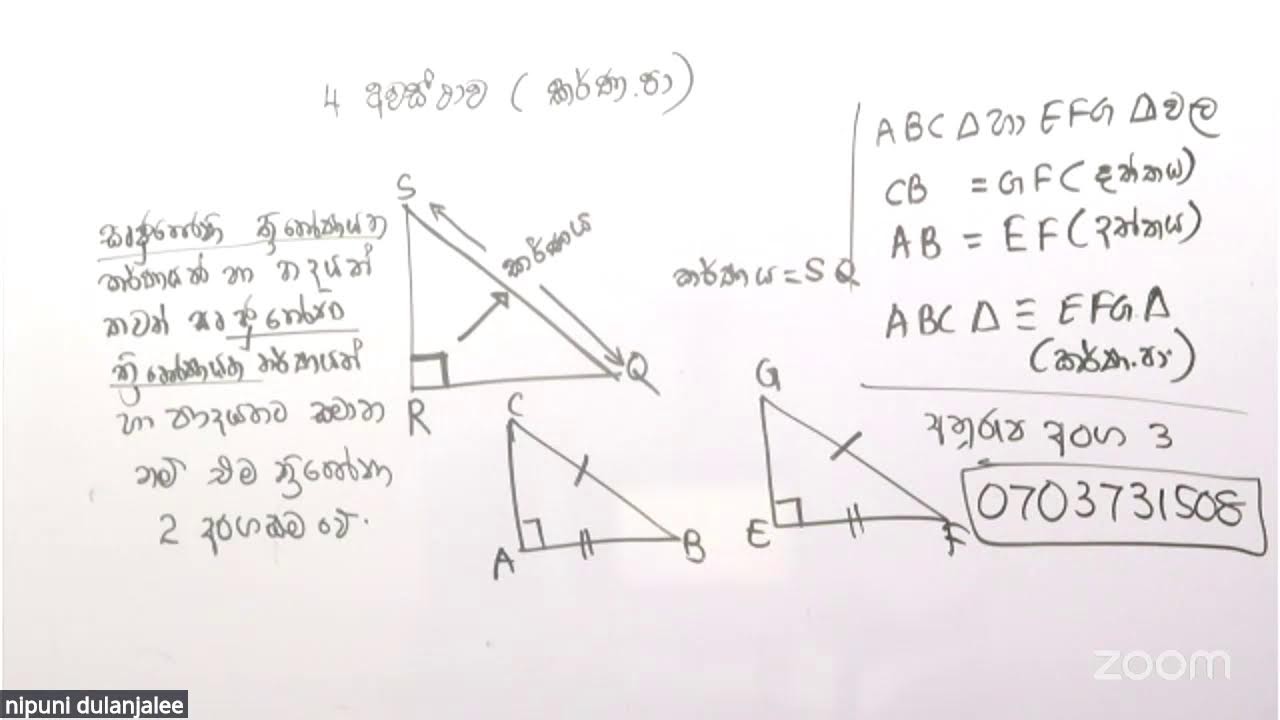 4 අවස්ථාව ( කර්ණ.පා)
සෘජුකෝණී ත්‍රිකෝණයක
කර්ණයත් හා පාදයක්
තවත් සෘජුකෝණී
ත්‍රිකෝණයක කර්ණයත්
හා පාදයකට සමාන
නම් එම ත්‍රිකෝණ
2 අංගසම වේ.
S
කර්ණය
Q
R
කර්ණය = SQ
C
A
B
G
E
F
ABC Δ හා EFG Δ වල
CB = GF (දත්තය)
AB = EF (දත්තය)
ABC Δ ≡ EFG Δ
(කර්ණ.පා)
අනුරූප අංග 3
0703731508
zoom
nipuni dulanjalee